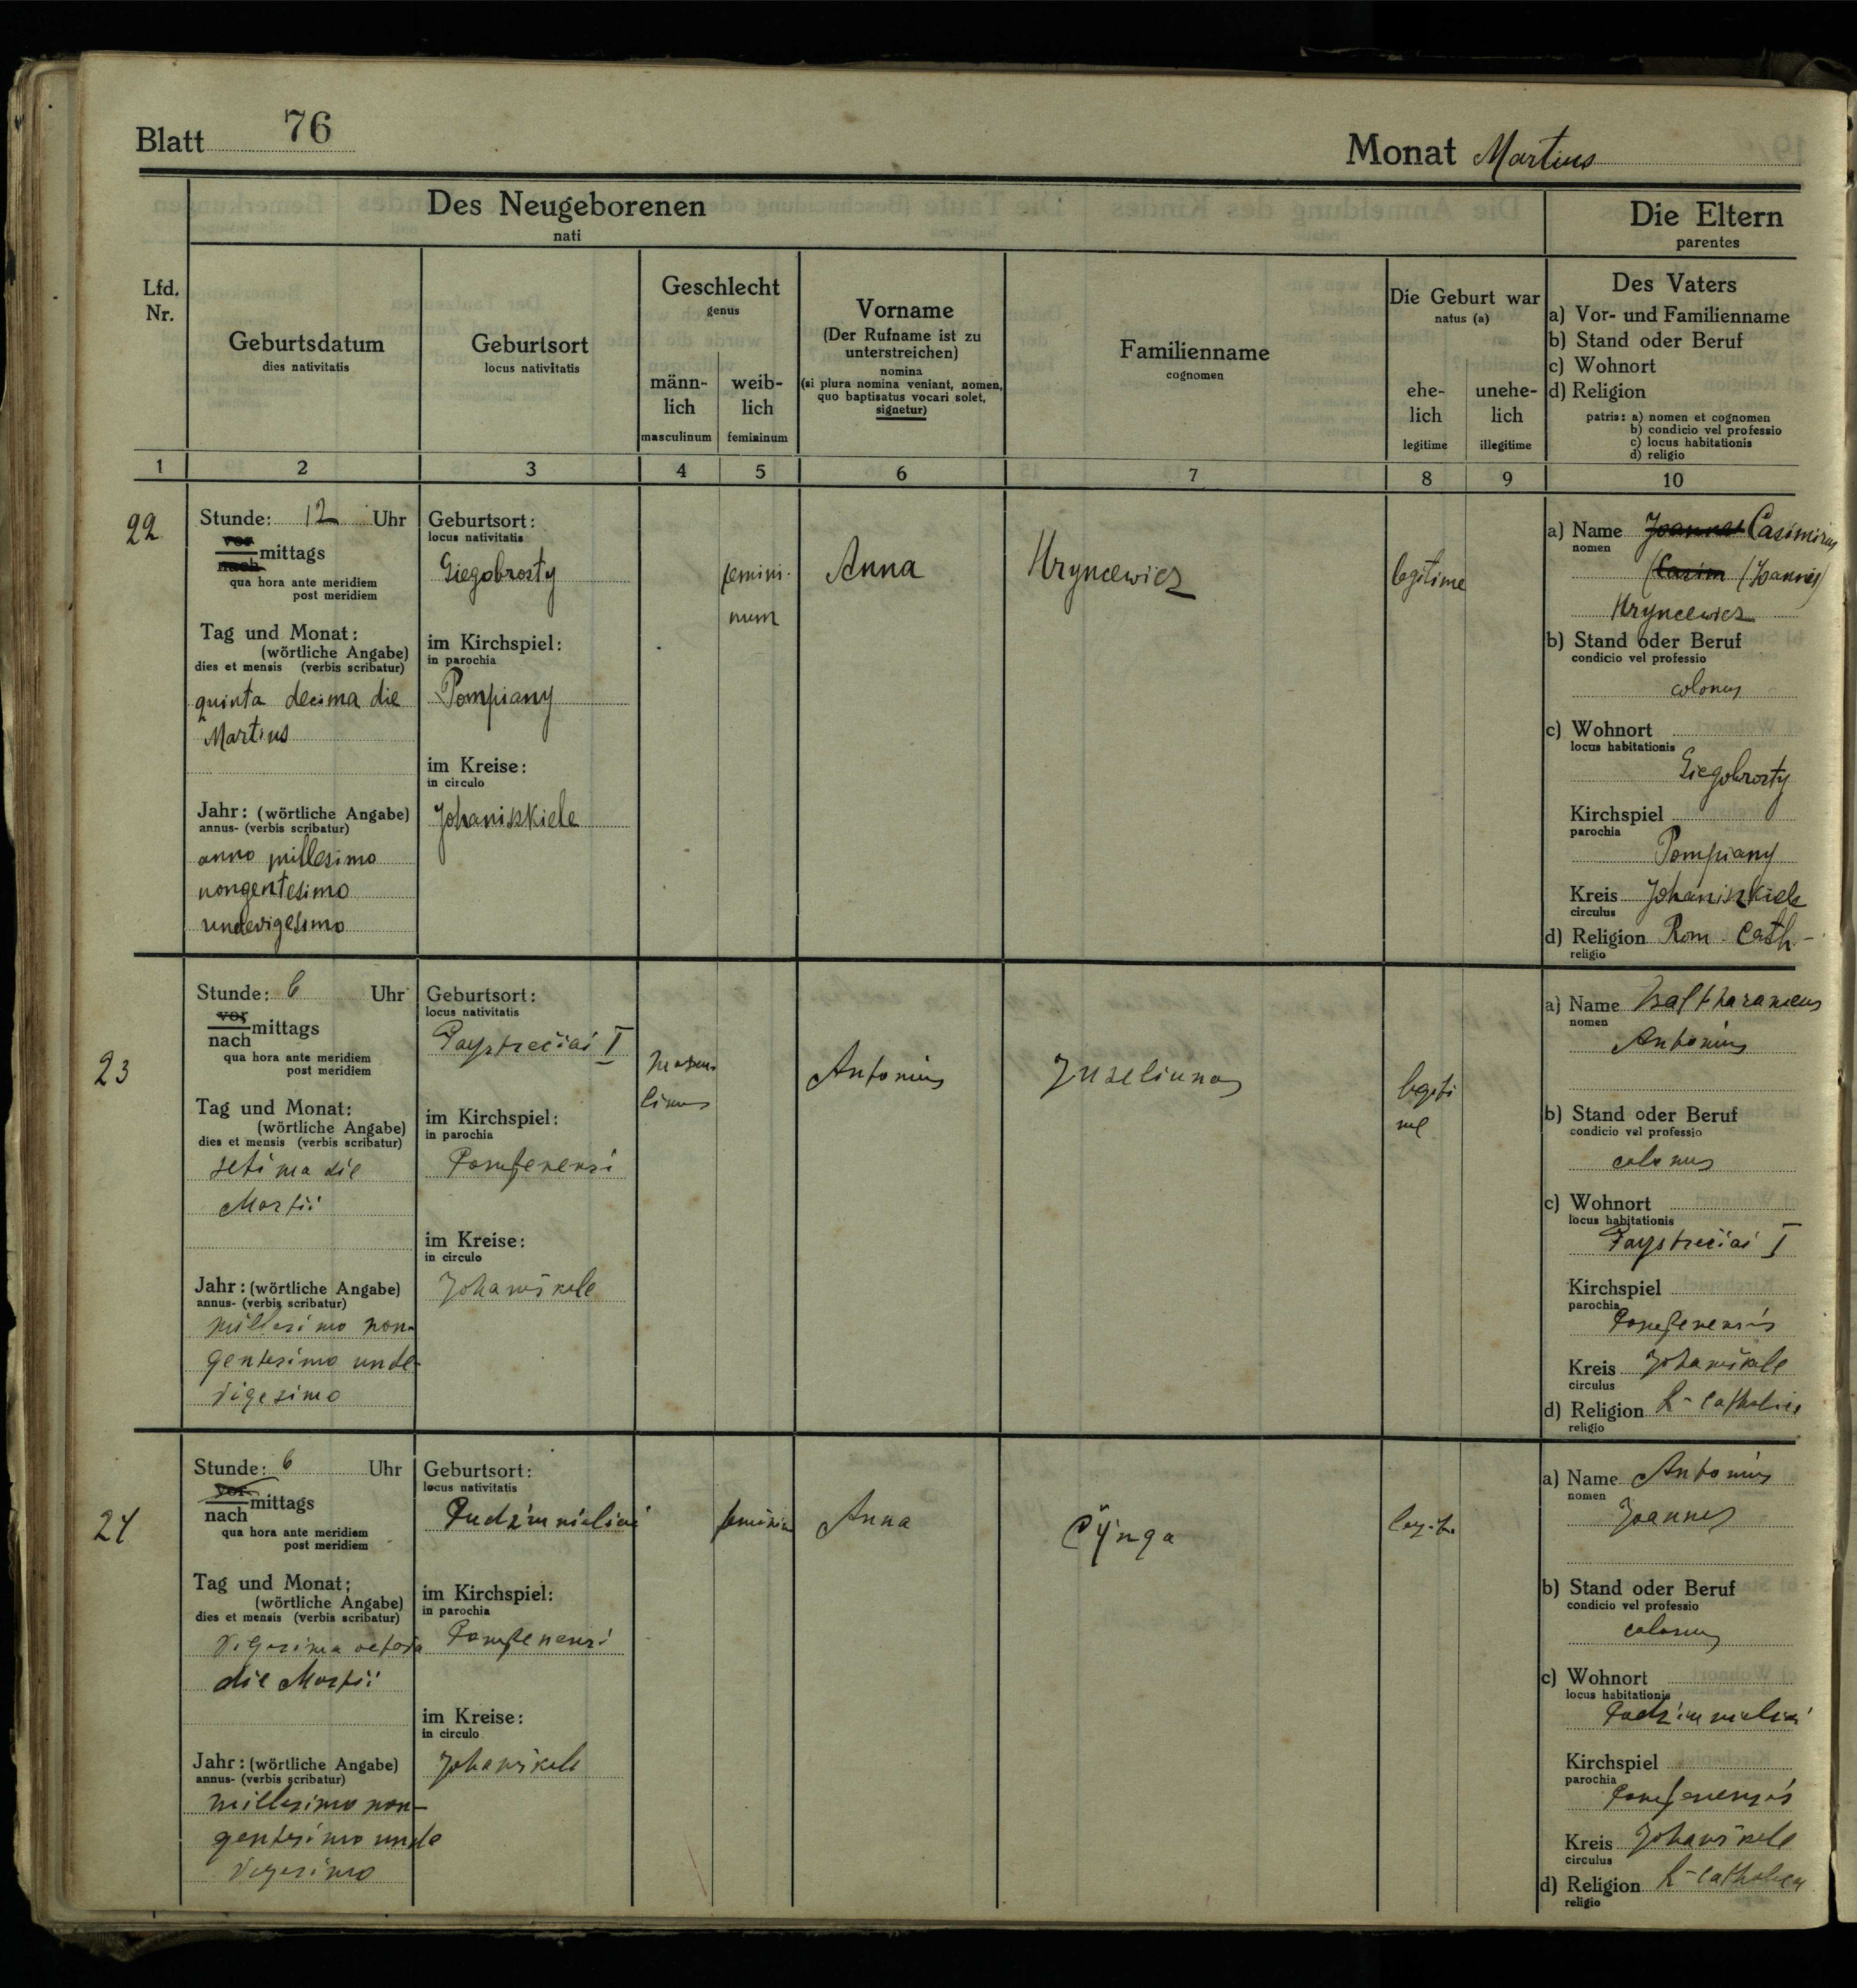 Blatt 76
Monat Martius
Des Neugeborenen
nati
Die Eltern
parentes
Lfd. Nr.
Geburtsdatum
dies nativitatis
Geburtsort
locus nativitatis
Geschlecht
genus
männ-
lich
masculinum
weib-
lich
femininum
Vorname
(Der Rufname ist zu
unterstreichen)
nomina
(si plura nomina veniant, nomen,
quo baptisatus vocari solet,
signetur)
Familienname
cognomen
Die Geburt war
natus (a)
ehe-
lich
legitime
unehe-
lich
illegitime
Des Vaters
a) Vor- und Familienname
b) Stand oder Beruf
c) Wohnort
d) Religion
patris: a) nomen et cognomen
b) condicio vel professio
c) locus habitationis
d) religio
1 2 3 4 5 6 7 8 9 10
22
Stunde: 12 Uhr
vor
nach mittags
qua hora ante meridiem
post meridiem
Tag und Monat:
(wörtliche Angabe)
dies et mensis (verbis scribatur)
quinta decima die
Martius
Jahr: (wörtliche Angabe)
annus- (verbis scribatur)
anno millesimo
nongentesimo
undevigesimo
Geburtsort:
locus nativitatis
Giegobrosty
im Kirchspiel:
in parochia
Pompiany
im Kreise:
in circulo
Johaniszkiele
femini-
num
Anna
Hryncewicz
legitime
a) Name Joannes Casimirus
nomen
(Casim (Joannes)
Hryncewicz
b) Stand oder Beruf
condicio vel professio
colonus
c) Wohnort
locus habitationis
Giegobrosty
Kirchspiel
parochia
Pompiany
Kreis Johaniszkiele
circulus
d) Religion Rom. Cath-
religio
23
Stunde: 6 Uhr
vor
nach mittags
qua hora ante meridiem
post meridiem
Tag und Monat:
(wörtliche Angabe)
dies et mensis (verbis scribatur)
setima die
Martii
Jahr: (wörtliche Angabe)
annus- (verbis scribatur)
millesimo non-
gentesimo unde-
vigesimo
Geburtsort:
locus nativitatis
Paystrečiai I
im Kirchspiel:
in parochia
Pompenensi
im Kreise:
in circulo
Johaniškele
mascu
linus
Antonius
Juzeliunas
legiti
me
a) Name
nomen
Antonius
b) Stand oder Beruf
condicio vel professio
colonus
c) Wohnort
locus habitationis
Paystrečiai I
Kirchspiel
parochia
Pompenensis
Kreis Johaniškele
circulus
d) Religion R-catholica
religio
24
Stunde: 6 Uhr
vor
nach mittags
qua hora ante meridiem
post meridiem
Tag und Monat:
(wörtliche Angabe)
dies et mensis (verbis scribatur)
vigesima octava
die Martii
Jahr: (wörtliche Angabe)
annus- (verbis scribatur)
millesimo non-
gentesimo unde
vigesimo
Geburtsort:
locus nativitatis
im Kirchspiel:
in parochia
Pompenensi
im Kreise:
in circulo
Johaniškele
feminin
Anna
legiti
a) Name Antonius
nomen
Joannes
b) Stand oder Beruf
condicio vel professio
colonus
c) Wohnort
locus habitationis
Kirchspiel
parochia
Pompenensis
Kreis Johaniškele
circulus
d) Religion R-catholica
religio